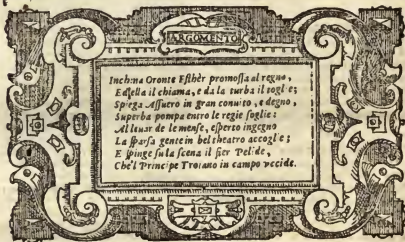 ARGOMENTO
Inchina Oronte Eſthèr promoſſa al regno,
Ed ella il chiama, e da la turba il toglie;
Spiega Aſſuero in gran conuito, e degno,
Superba pompa entro le regie ſoglie:
Al leuar de le menſe, eſperto ingegno
La ſparſa gente in bel theatro accoglie;
E ſpinge ſu la ſcena il fier Pelide,
Che'l Principe Troiano in campo vccide.